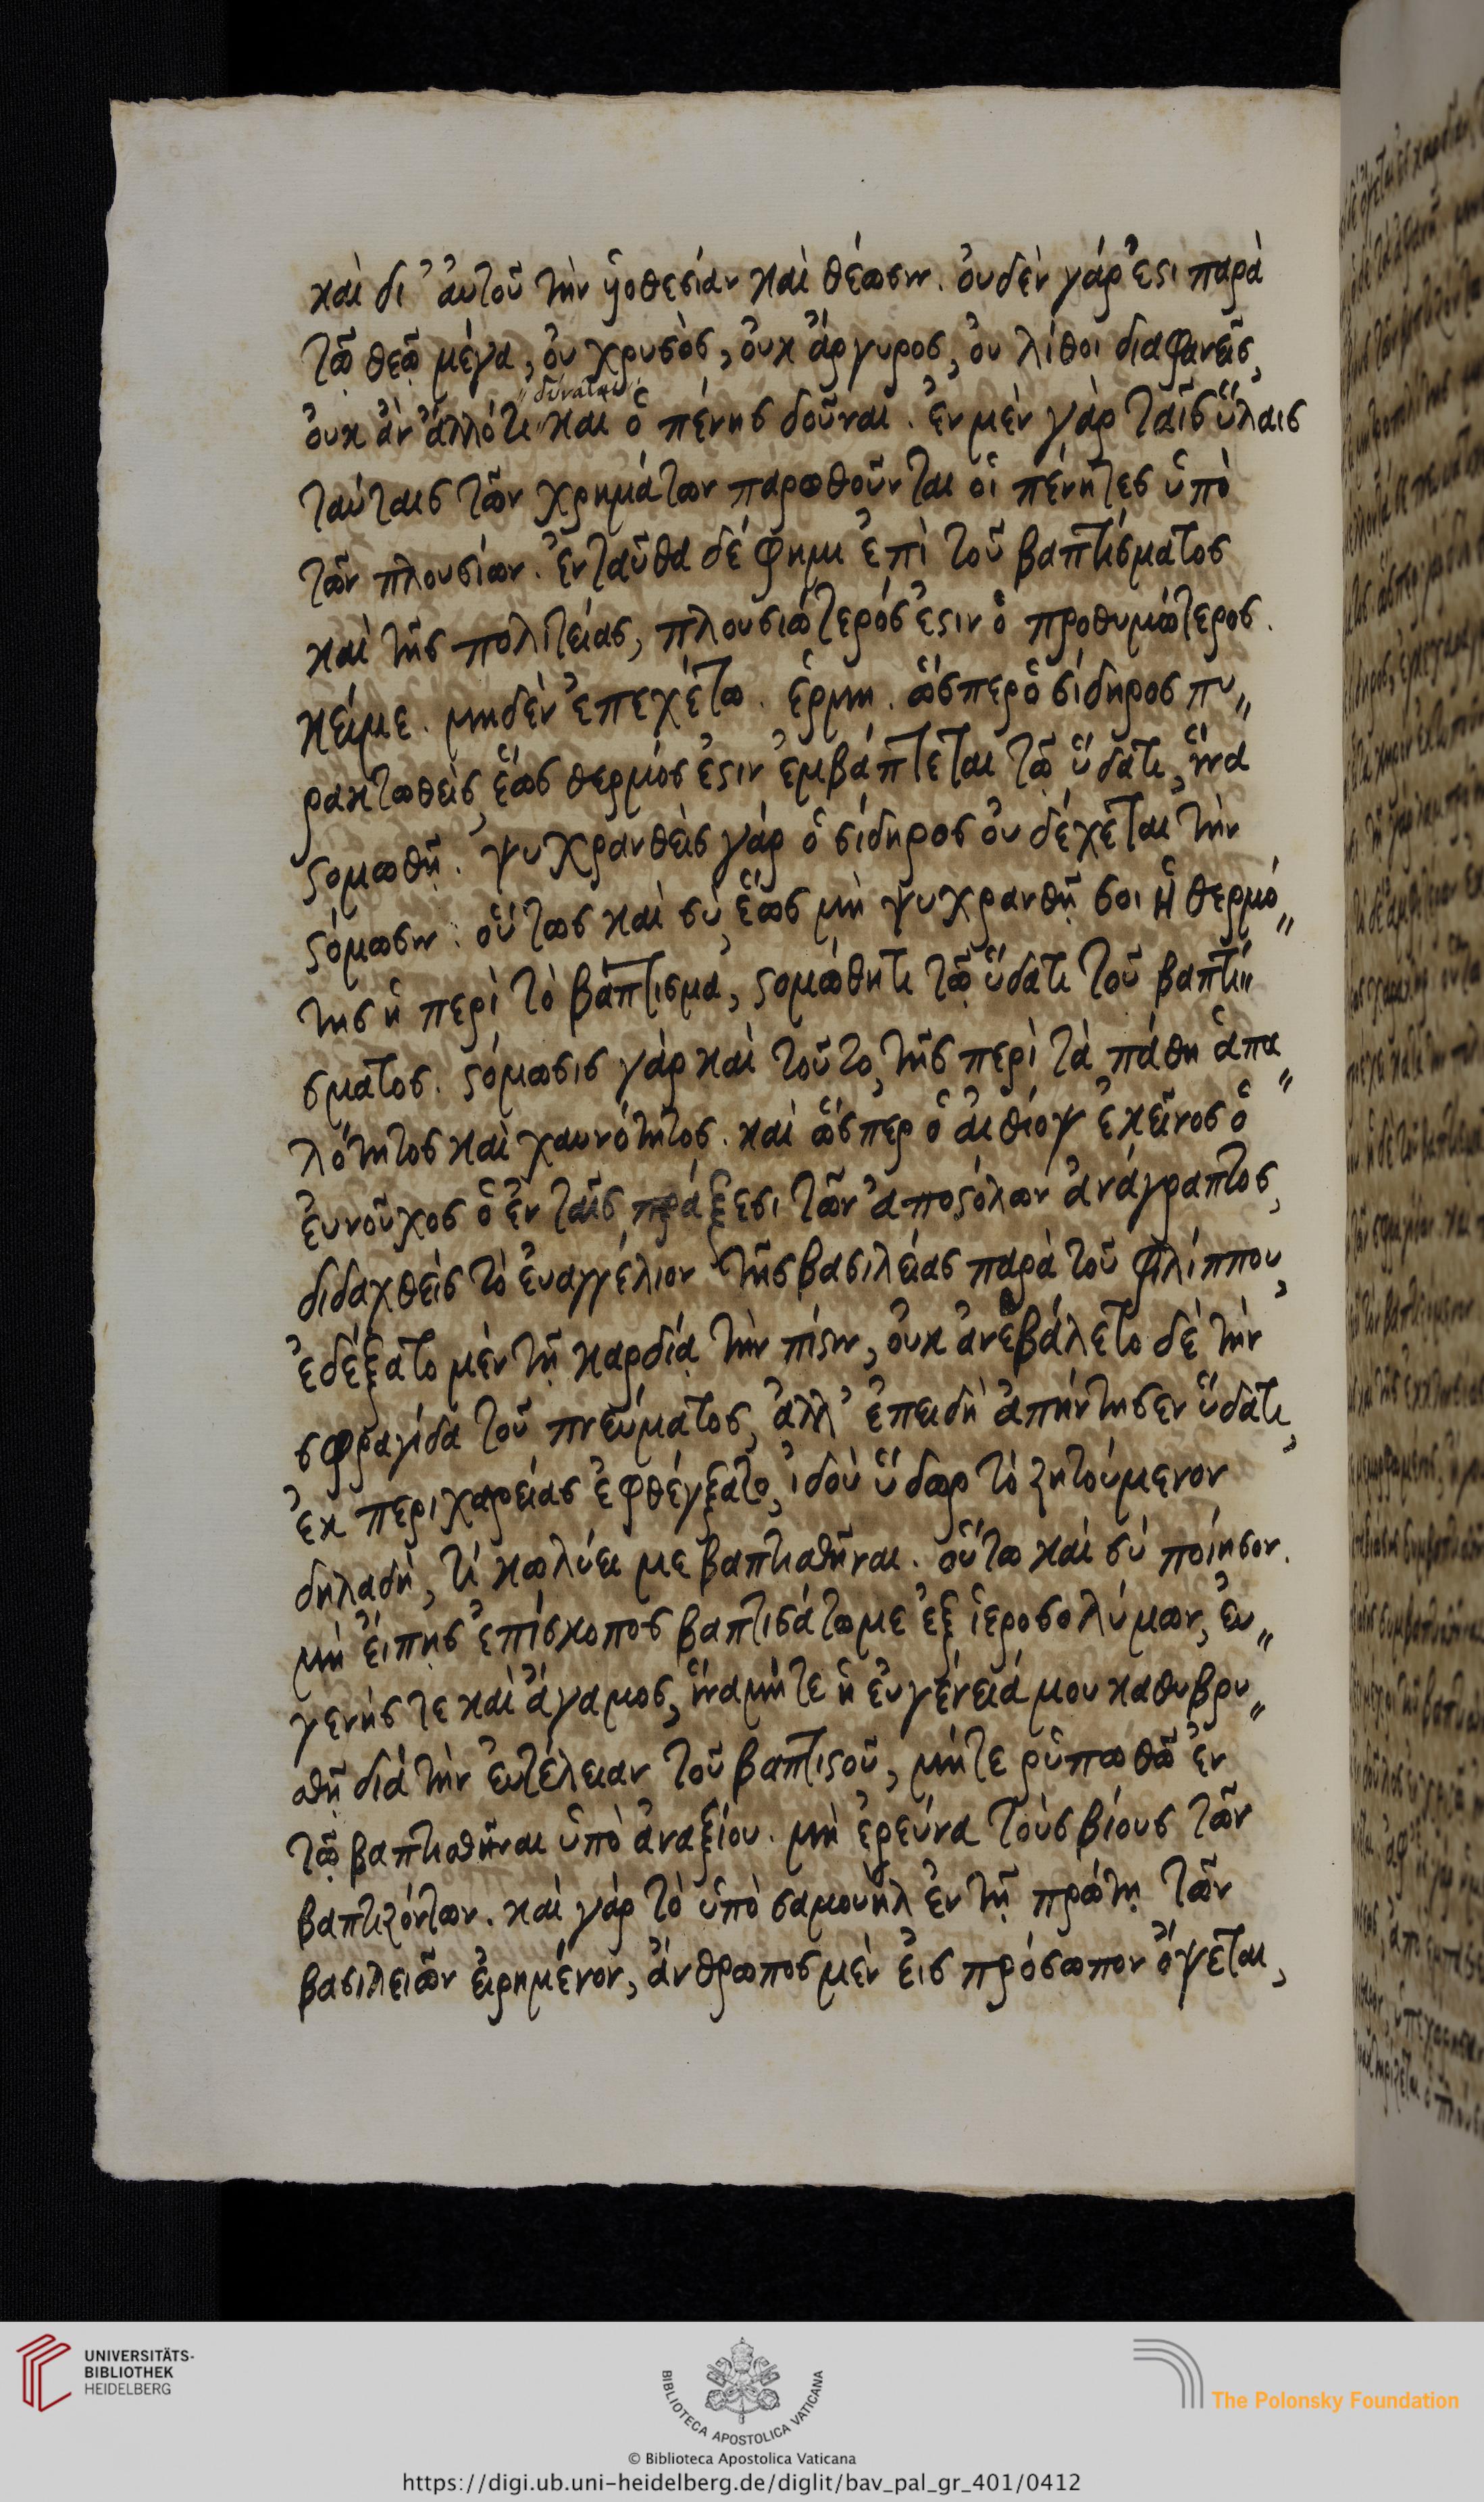 καὶ δι' ἀυτοῦ τὴν ὑοθεσίαν καὶ θέωσιν. ὀυδὲν γάρ ἐστι παρὰ
τῶ θεῶ μέγα, ὀυ χρυσὸς, ὀυκ ἄργυρος, ὀυ λίθοι διαφανεῖς,
δύναται
ὀυκ ἂν ἄλλό τι καὶ ὁ πένης δοῦναι. ἐν μὲν γὰρ ταῖς ὕλαις
ταύταις τῶν χρημάτων παρωθοῦνται ὁι πένητες ὑπὸ
τῶν πλουσίων. ἐνταῦθα δέ φημι ἐπὶ τοῦ βαπτίσματος
καὶ τῆς πολιτείας, πλουσιώτερός ἐστιν ὁ προθυμώτερος.
κείμε. μηδὲν ἐπεχέτω. ἑρμη. ὥσπερ ὁ σίδηρος πυ"
ρακτωθεὶς, ἕως θερμός ἐστιν ἐμβάπτεται τῶ ὕδατι, ἵνα
στομωθῆ. ψυχρανθεὶς γάρ ὁ σίδηρος ὀυ δέχεται τὴν
στόμωσιν. ὅυτως καὶ σὺ, ἕως μὴ ψυχρανθῆ σοι ἡ θερμό"
της ἡ περὶ τὸ βάπτισμα, στομώθητι τῶ ὕδατι τοῦ βαπτί"
σματος. στόμωσις γάρ καὶ τοῦτο, τῆς περὶ τὰ πάθη ἁπα"
λότητος καὶ χαυνότητος. καὶ ὥσπερ ὁ ἀιθίοψ ἐκεῖνος ὁ
ἐυνοῦχος ὁ ἐν ταῖς πράξεσι τῶν ἀποστόλων ἀνάγραπτος,
διδαχθεὶς τὸ ἐυαγγέλιον τῆς βασιλείας παρὰ τοῦ φιλίππου,
ἐδέξατο μὲν τῆ καρδία τὴν πίστιν, ὀυκ ἀνεβάλετο δὲ τὴν
σφραγίδα τοῦ πνεύματος, ἀλλ' ἐπειδὴ ἀπήντησεν ὕδατι,
ἐκ περιχαρείας ἐφθέγξατο, ἰδοὺ ὕδωρ τὸ ζητούμενον
δηλαδὴ, τί κωλύει με βαπτισθῆναι. ὅυτω καὶ σὺ ποίησον.
μὴ ἔιπης ἐπίσκοπος βαπτισάτω με ἐξ ἱεροσολύμων, ἐυ"
γενής τε καὶ ἄγαμος, ἵνα μήτε ἡ ἐυγένειά μου καθυβρι"
σθῆ διὰ τὴν ἐυτέλειαν τοῦ βαπτιστοῦ, μήτε ρὑπωθῶ ἐν
τῶ βαπτισθῆναι ὑπὸ ἀναξίου. μὴ ἐρεύνα τοὺς βίους τῶν
βαπτιζόντων. καὶ γάρ τὸ ὑπὸ σαμουὴλ ἐν τῆ πρώτη τῶν
βασιλειῶν ἐιρημένον, ἄνθρωπος μὲν ἐις πρόσωπον ὄψεται,
UNIVERSITÄTS-
BIBLIOTHEK
HEIDELBERG
BIBLIOTECA APOSTOLICA VATICANA
The Polonsky Foundation
© Biblioteca Apostolica Vaticana
https://digi.ub.uni-heidelberg.de/diglit/bav_pal_gr_401/0412